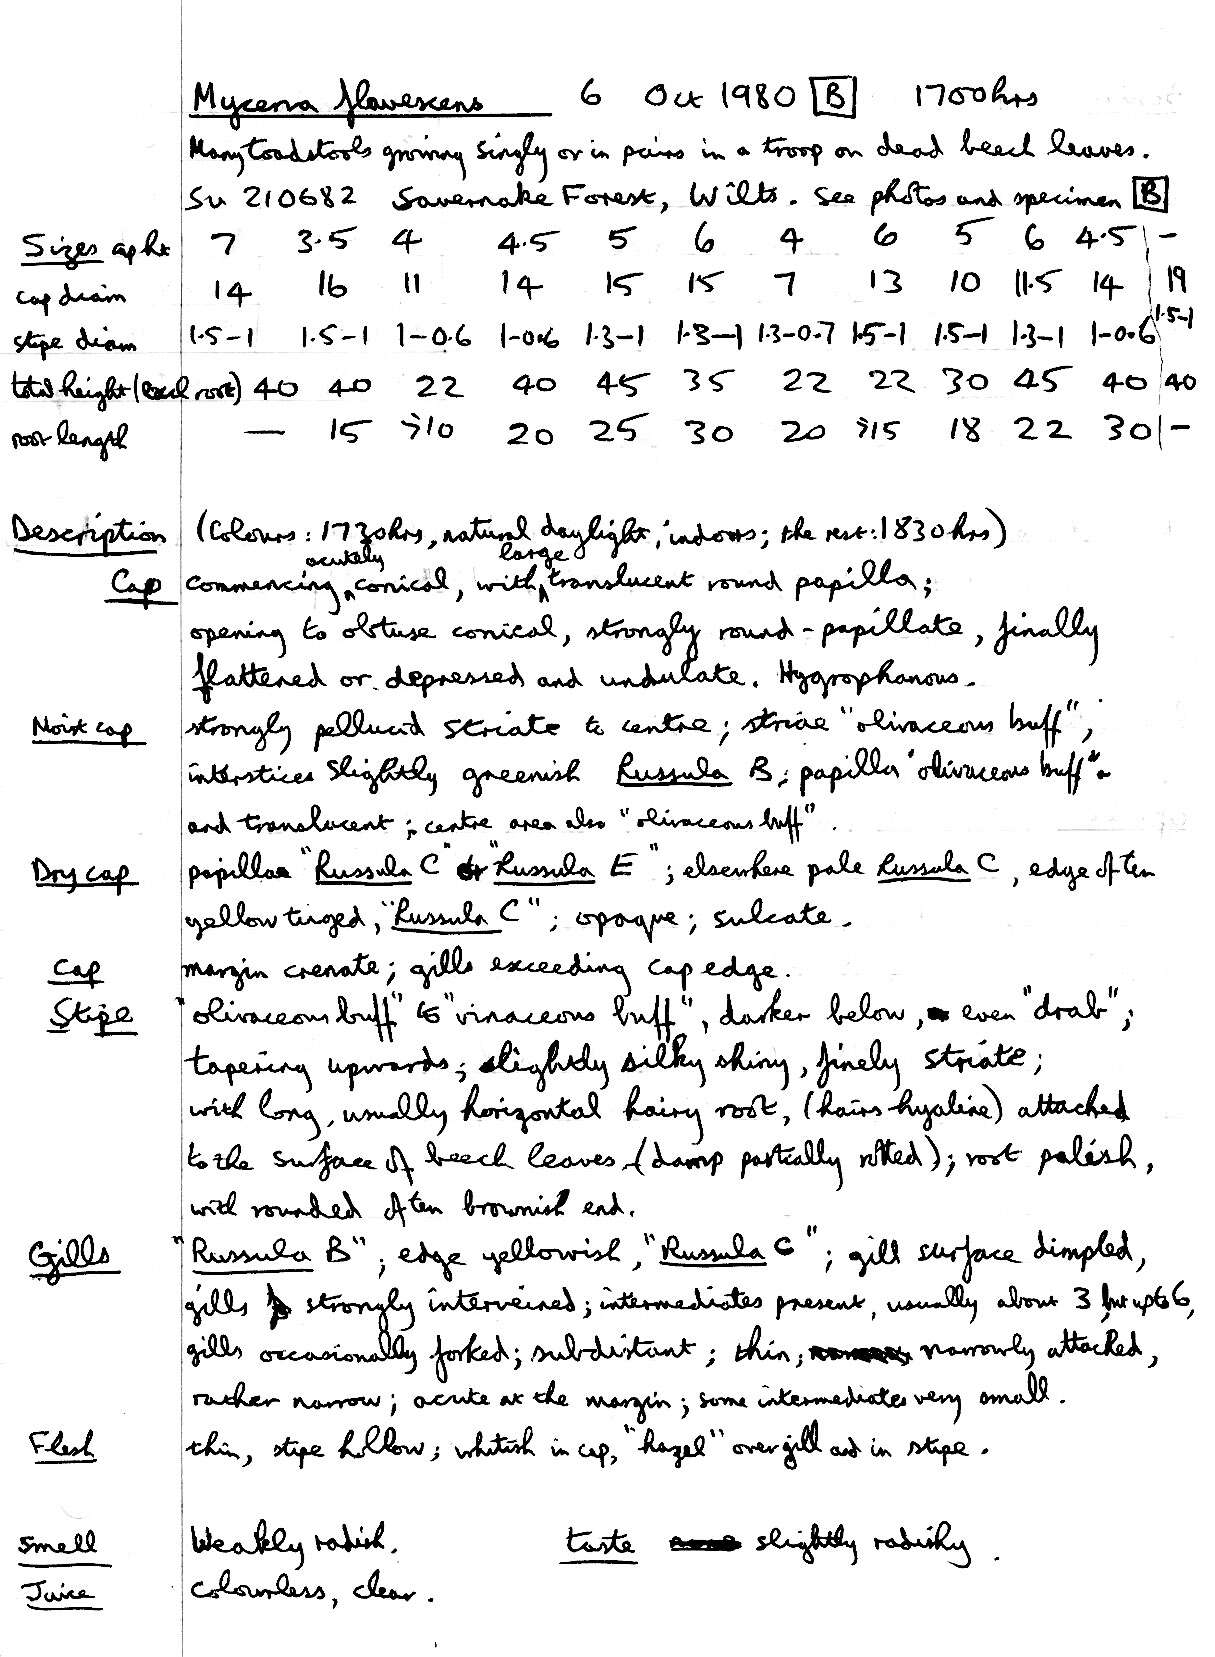 Mycena flavescens 6 Oct 1980 B 1700hrs
Many toadstools growing singly or in pairs in a troop on dead beech leaves.
SU 210682 Savernake Forest, Wilts. See photos and specimen B
Sizes cap ht 7 3.5 4 4.5 5 6 4 6 5 6 4.5 -
cap diam 14 16 11 14 15 15 7 13 10 11.5 14 19
stipe diam 1.5-1 1.5-1 1-0.6 1-0.6 1.3-1 1.3-1 1.3-0.7 1.5-1 1.5-1 1.3-1 1-0.6 1.5-1
total height (excl root) 40 40 22 40 45 35 22 22 30 45 40 40
root length — 15 >10 20 25 30 20 >15 18 22 30 -
Description (Colours: 1730hrs, natural daylight, indoors; the rest: 1830hrs)
Cap commencing acutely conical, with large translucent round papilla;
opening to obtuse conical, strongly round-papillate, finally
flattened or depressed and undulate. Hygrophanous.
Moist cap strongly pellucid striate to centre; striae "olivaceous buff",
interstices slightly greenish Russula B; papilla "olivaceous buff"
and translucent; centre area also "olivaceous buff".
Dry cap papilla "Russula C" or "Russula E"; elsewhere pale Russula C, edge often
yellow tinged, "Russula C"; opaque; sulcate.
Cap margin crenate; gills exceeding cap edge.
Stipe "olivaceous buff" to "vinaceous buff", darker below, even "drab";
tapering upwards; slightly silky shiny, finely striate;
with long, usually horizontal hairy root, (hairs hyaline) attached
to the surface of beech leaves (damp partially rotted); root palish,
with rounded often brownish end.
Gills "Russula B"; edge yellowish, "Russula C"; gill surface dimpled,
gills strongly interveined; intermediates present, usually about 3 but up to 6,
gills occasionally forked; subdistant; thin; narrowly attached,
rather narrow; acute at the margin; some intermediates very small.
Flesh thin, stipe hollow; whitish in cap, "hazel" over gill and in stipe.
Smell Weakly radish. taste slightly radishy.
Juice colourless, clear.